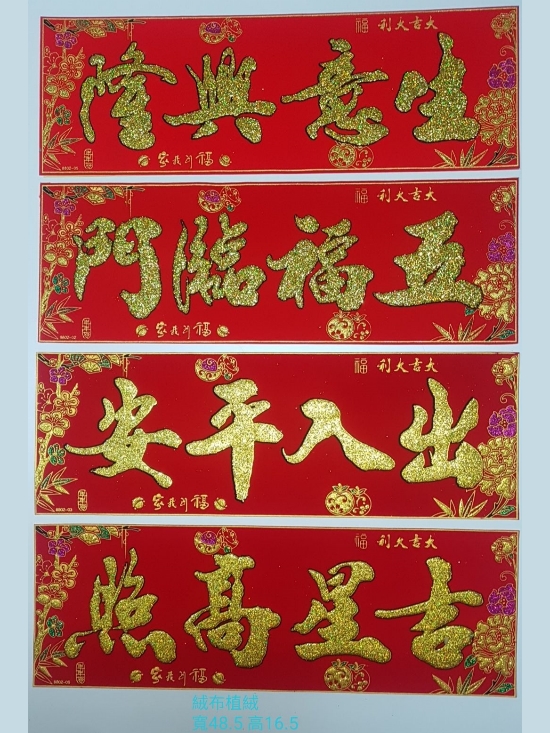 大吉大利 福
生意興隆
福到我家
大吉大利 福
五福臨門
福到我家
大吉大利 福
出入平安
福到我家
大吉大利 福
吉星高照
福到我家
絨布植絨
寬48.5 高16.5